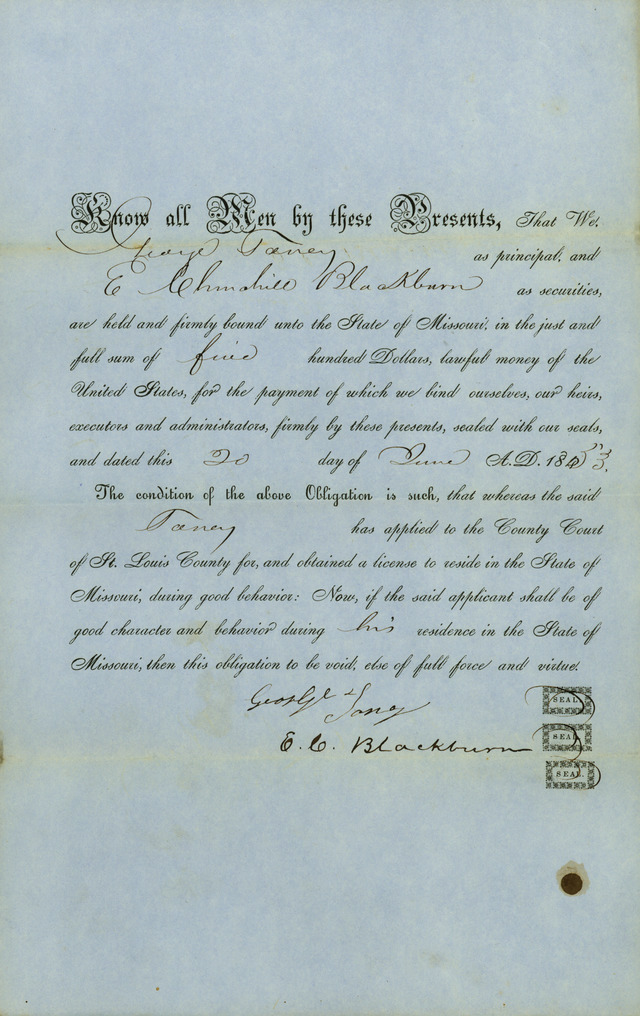 Know all Men by these Presents, That We,
George Taney as principal, and
E Churchill Blackburn as securities,
are held and firmly bound unto the State of Missouri, in the just and
full sum of five hundred Dollars, lawful money of the
United States, for the payment of which we bind ourselves, our heirs,
executors and administrators, firmly by these presents, sealed with our seals,
and dated this 20 day of June A.D. 1853.
The condition of the above Obligation is such, that whereas the said
Taney has applied to the County Court
of St. Louis County for, and obtained a license to reside in the State of
Missouri, during good behavior: Now, if the said applicant shall be of
good character and behavior during his residence in the State of
Missouri, then this obligation to be void, else of full force and virtue.
George Taney SEAL.
E. C. Blackburn SEAL.
SEAL.